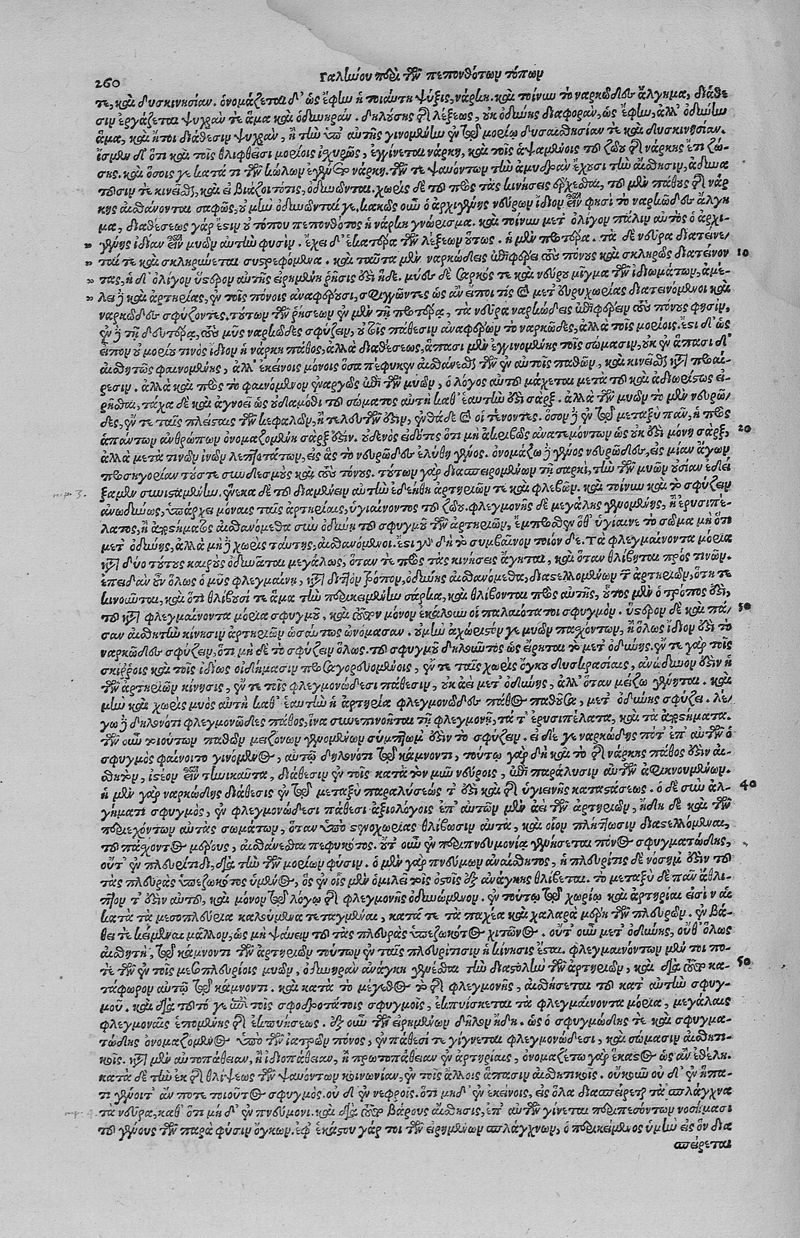 260
Γαληνοῦ περὶ τῶν πεπονθότων τόπων
τε, καὶ δυσκινησίαν. ὀνομάζεται δ' ὡς ἔφην ἡ τοιαύτη ψύξις, νάρκη. καὶ τοίνυν τὸ ναρκῶδες ἄλγημα, διάθε
σιν ἐργάζεται ψυχράν τε ἅμα καὶ ὀδυνηράν. δηλούσης τῆς λέξεως, οὐκ ὀδύνης διαφοράν, ὡς ἔφην, ἀλλ' ὀδύνην
ἅμα, καὶ ἤτοι διάθεσιν ψυχράν, ἢ τὴν ὑπ' αὐτῆς γινομένην ἐν τῷ μορίῳ δυσαισθησίαν τε καὶ δυσκινησίαν.
ἴσμεν δ' ὅτι καὶ τοῖς θλιφθεῖσι μορίοις ἰσχυρῶς, ἐγγίνεται νάρκη, καὶ τοῖς ἁψαμένοις τοῦ ζώου τῆς νάρκης ἔτι ζώ-
σης. καὶ ὅσοις γε κατά τι τῶν κώλων ἐγένετο νάρκη. τῶν τε ψαυόντων τὴν ἀμυδρὰν ἔχουσι τὴν αἴσθησιν, ἀδυνα
τοῦσίν τε κινεῖσθαι, καὶ εἰ βιάζοιτό τις, ὀδυνῶνται. χωρὶς δὲ τοῦ πρὸς τὰς κινήσεις ἔρχεσθαι, τοῦ μὲν πάθους τῆς νάρ
κης αἰσθάνονται σαφῶς, οὐ μὴν ὀδυνῶνταί γε. κακῶς οὖν ὁ ἀρχιγένης νεύρων ἴδιον εἶναί φησι τὸ ναρκῶδες ἄλγη
μα, διαθέσεως γάρ ἐστιν οὐ τόπου πεπονθότος ἡ νάρκη γνώρισμα. καὶ τοίνυν μετ' ὀλίγον πάλιν αὐτὸς ὁ ἀρχι-
γένης ἰδίαν εἶναι μυῶν αὐτὴν φησίν. ἔχει δ' ἑκατέρα τῶν λέξεων οὕτως. ἡ μὲν προτέρα. τὰ δὲ νεῦρα διατείνε/
ταί τε καὶ σκληρύνεται συστρεφόμενα. καὶ ταῦτα μὲν ναρκώδεις ἐπιφέρει τοὺς πόνους καὶ σκληρῶς διατείνον 10
τας, ἡ δ' ὀλίγον ὕστερον αὐτῆς εἰρημένη ῥῆσις ἐστὶν ἥδε. μῦς δὲ σαρκός τε καὶ νεύρου μῖγμα τῶν ἰδιωμάτων, ἀμέ-
λει ἢ καὶ ἀρτηρίας, ἐν τοῖς πόνοις ἀναφέρουσι, σφίγγοντες ὡς ἂν εἴποι τις καὶ μετ' εὐρυχωρίας διατεινόμενοι καὶ
ναρκώδεις σφύζοντες. τούτων τῶν ῥήσεων ἐν μὲν τῇ προτέρᾳ, τὰ νεῦρα ναρκώδεις ἐπιφέρειν τοὺς πόνους φησίν,
ἐν δὲ τῇ δευτέρᾳ, τοὺς μῦς ναρκῶδες σφύζειν, οὐ τοῖς πάθεσιν ἀναφέρων τὸ ναρκῶδες, ἀλλὰ τοῖς μορίοις. ἔστι δ' ὡς
εἶπον οὐ μορίου τινὸς ἴδιον ἡ νάρκη πάθος, ἀλλὰ διαθέσεως, ἅπασι μὲν ἐγγινομένης τοῖς σώμασιν, οὐκ ἐν ἅπασι δ'
αἰσθητῶς φαινομένης, ἀλλ' ἐκείνοις μόνοις ὅσα πέφυκεν αἰσθάνεσθαι τῶν ἐν αὐτοῖς παθῶν, καὶ κινεῖσθαι κατὰ προαί-
ρεσιν. ἀλλὰ καὶ πρὸς τὸ φαινόμενον ἐναργῶς ἐπὶ τῶν μυῶν, ὁ λόγος αὐτοῦ μάχεται μετὰ τοῦ καὶ ἀδιορίστως εἰ-
ρῆσθαι, τάχα δὲ καὶ ἀγνοεῖ ὡς οὐδαμόθι τοῦ σώματος αὐτὴ καθ' ἑαυτὴν ἐστι σάρξ. ἀλλὰ τῶν μυῶν τὸ μὲν νευρῶ/
δες, ἐν ταῖς πλείσταις τῶν κεφαλῶν, ἢ τελευτῶν ἐστιν, ἐνθάδε καὶ οἱ τένοντες. ὅσον δ' ἐν τῷ μεταξὺ πᾶν, ἢ πρὸς
ἁπάντων ἀνθρώπων ὀνομαζομένη σάρξ ἐστιν. οὐδενὸς εἰδότος ὅτι μὴ ἀκριβῶς ἀνατεμόντων ὡς οὐκ ἔστι μόνη σάρξ, 20
ἀλλὰ μετά τινων ἰνῶν λεπτοτάτων, εἰς ἃς τὸ νευρῶδες ἐλύθη γένος. ὀνομάζω δ' γένος νευρῶδες, εἰς μίαν ἄγων
προσηγορίαν τούς τε συνδέσμους καὶ τοὺς τόνους. τούτων γὰρ διασπειρομένων τῇ σαρκὶ, τὴν τῶν μυῶν οὐσίαν ἐδεί
ξαμεν συνισταμένην. ἕνεκα δὲ τοῦ διαμένειν αὐτὴν ἐδεήθη ἀρτηριῶν τε καὶ φλεβῶν. καὶ τοίνυν καὶ τὸ σφύζειν
ἀνωδύνως, ὑπάρχει μόναις ταῖς ἀρτηρίαις, ὑγιαίνοντος τοῦ ζώου. φλεγμονῆς δὲ μεγάλης γενομένης, ἢ ἐρυσιπέ-
λατος, ἢ ἀποστήματος αἰσθανόμεθα σὺν ὀδύνῃ τοῦ σφυγμοῦ τῶν ἀρτηριῶν, ἔμπροσθεν ὅθ' ὑγίαινε τὸ σῶμα μὴ ὅτι
μετ' ὀδύνης, ἀλλὰ μηδὲ χωρὶς ταύτης, αἰσθανόμενοι. ἔστι γὰρ δὴ τὸ συμβαῖνον τοιόνδε. τὰ φλεγμαίνοντα μόρια
κατὰ δύο τούτους καιροὺς ὀδυνᾶται μεγάλως, ὅταν τε πρὸς τὰς κινήσεις ἄγηται, καὶ ὅταν θλίβηται πρός τινων.
ἐπειδὰν οὖν ὅλως ὁ μῦς φλεγμαίνῃ, κατὰ διττὸν τρόπον, ὀδύνης αἰσθανόμεθα, διαστελλομένων τῶν ἀρτηριῶν, ὅτι τε
κινοῦνται, καὶ ὅτι θλίβουσί τε ἅμα τὴν περικειμένην σάρκα, καὶ θλίβονται πρὸς αὐτῆς, οὗτος μὲν ὁ τρόπος ἐστὶ,
τοῦ κατὰ φλεγμαίνοντα μόρια σφυγμοῦ, καὶ τοῦτον μόνον ἐκάλουν οἱ παλαιότατοι σφυγμόν. ὕστερον δὲ καὶ πᾶ- 30
σαν αἰσθητὴν κίνησιν ἀρτηριῶν ὡσαύτως ὠνόμασαν. οὐ μὴν ἀχώριστόν γε μυῶν πασχόντων, ἢ ὅλως ἴδιον ἐστὶ τὸ
ναρκῶδες σφύζειν, ὅτι μηδὲ τὸ σφύζειν ὅλως. τοῦ σφυγμοῦ δηλονότι ὡς εἴρηται τὸ μετ' ὀδύνης. ἔν τε γὰρ τοῖς
σκίρροις καὶ τοῖς ἰδίως οἰδήμασιν προσαγορευομένοις, ἔν τε ταῖς χωρὶς ὄγκου δυσκρασίαις, ἀνώδυνόν ἐστιν ἡ
τῶν ἀρτηριῶν κίνησις, ἔν τε τοῖς φλεγμονώδεσι πάθεσιν, οὐκ ἀεὶ μετ' ὀδύνης, ἀλλ' ὅταν μείζω γένηται. καὶ
μὴν καὶ χωρὶς μυὸς αὐτὴ καθ' ἑαυτὴν ἡ ἀρτηρία φλεγμονῶδες πάθος παθοῦσα, μετ' ὀδύνης σφύζει. λέ/
γω δὲ δηλονότι φλεγμονῶδες πάθος, ἵνα συνεπινοῆται τῇ φλεγμονῇ, τά τ' ἐρυσιπέλατα, καὶ τὰ ἀποστήματα.
τῶν οὖν τοιούτων παθῶν μειζόνων γενομένων σύμπτωμά ἐστιν τὸ σφύζειν. εἰ δέ γε ναρκώδης ποτ' ἐπ' αὐτῶν ὁ
σφυγμὸς φαίνοιτο γινόμενος, αὐτῷ δηλονότι τῷ κάμνοντι, τούτῳ γὰρ δὴ καὶ τὸ τῆς νάρκης πάθος ἐστὶν αἰ-
σθητὸν, ἰστέον εἶναι τηνικαῦτα, διάθεσιν ἐν τοῖς κατὰ τὸν μῦν νεύροις, ἐπὶ παράλυσιν αὐτῶν ἀφικνουμένων.
ἡ μὲν γὰρ ναρκώδης διάθεσις ἐν τῷ μεταξὺ παραλύσεώς τ' ἐστὶ καὶ τῆς ὑγιεινῆς καταστάσεως. ὁ δὲ σὺν ἀλ- 40
γήματι σφυγμὸς, ἐν φλεγμονώδεσι πάθεσι ἀξιολόγοις ἐπ' αὐτῶν μὲν ἀεὶ τῶν ἀρτηριῶν, ἤδη δὲ καὶ τῶν
περιεχόντων αὐτὰς σωμάτων, ὅταν ὑπὸ στενοχωρίας θλίβωσιν αὐτά, καὶ οἷον πλήττωσιν διαστελλόμεναι,
τοῦ πάσχοντος μέρους, αἰσθάνεσθαι πεφυκότος. οὔτ' οὖν ἐν περιπνευμονίᾳ γενήσεται πόνος σφυγματώδης,
οὔτ' ἐν πλευρίτιδι, διὰ τὴν τῶν μορίων φύσιν. ὁ μὲν γὰρ πνεύμων ἀναίσθητος, ἡ πλευρῖτις δὲ νόσημά ἐστιν τοῦ
τὰς πλευρὰς ὑπεζωκότος ὑμένος, ὃς ἐν οἷς μὲν ὁμιλεῖ τοῖς ὀστοῖς ἐξ ἀνάγκης θλίβεται. τὸ μεταξὺ δὲ πᾶν ἄθλι-
πτόν τ' ἐστὶν αὐτοῦ, καὶ μόνον τῷ λόγῳ τῆς φλεγμονῆς ὀδυνώμενον. ἐν τούτῳ τῷ χωρίῳ καὶ ἀρτηρίαι εἰσὶν αἱ
κατὰ τὰ μεσοπλεύρια καλούμενα τεταγμέναι, κατά τε τὰ παχέα καὶ χαλαρὰ μέρη τῶν πλευρῶν. ἐν βά-
θει τε κείμεναι μᾶλλον, ὡς μὴ ψαύειν τοῦ τὰς πλευρὰς ὑπεζωκότος χιτῶνος. οὔτ' οὖν μετ' ὀδύνης, οὔθ' ὅλως
αἰσθητὴ, τῷ κάμνοντι τῶν ἀρτηριῶν τούτων ἐν ταῖς πλευρίτισιν ἡ κίνησις ἔσται. φλεγμαινόντων μέν τοι πο-
τε τῶν ἐν τοῖς μεσοπλευρίοις μυῶν, ὀδυνηρὰν ἀνάγκη γενέσθαι τὴν διαστολὴν τῶν ἀρτηριῶν, καὶ διὰ τοῦτο κα- 50
τάφωρον αὐτῷ τῷ κάμνοντι. καὶ κατὰ τὸ μέγεθος τῆς φλεγμονῆς, αἰσθήσεται τοῦ κατ' αὐτὴν σφυγ-
μοῦ. καὶ διὰ τοῦτό γε ἐπὶ τοῖς σφοδροτάτοις σφυγμοῖς, ἐκπυΐσκεται τὰ φλεγμαίνοντα μόρια, μεγάλαις
φλεγμοναῖς ἑπομένης τῆς ἐκπυήσεως. ἐξ οὖν τῶν εἰρημένων δῆλον ἤδη. ὡς ὁ σφυγμώδης τε καὶ σφυγμα-
τώδης ὀνομαζόμενος ὑπὸ τῶν ἰατρῶν πόνος, ἐν πάθεσί τε γίγνεται φλεγμονώδεσι, καὶ σώμασιν αἰσθητι-
κοῖς. κατὰ μὲν αὐτοπάθειαν, ἢ ἰδιοπάθειαν, ἢ πρωτοπάθειαν ἐν ἀρτηρίαις, ὀνομαζέτω γὰρ ἕκαστος ὡς ἂν ἐθέλῃ.
κατὰ δὲ τὴν ἐκ τῆς θλίψεως τῶν ψαυόντων κοινωνίαν, ἐν τοῖς ἄλλοις ἅπασιν αἰσθητικοῖς. οὔκουν οὐδ' ἐν ἥπα-
τι γένοιτ' ἄν ποτε τοιοῦτος σφυγμός. οὐδ' ἐν νεφροῖς. ὅτι μηδ' ἐν ἐκείνοις, εἰς ὅλα διασπείρεται τὰ σπλάγχνα
τὰ νεῦρα, καθ' ὅτι μηδ' ἐν πνεύμονι. καὶ διὰ τοῦτο βάρους αἴσθησις, ἐπ' αὐτῶν γίνεται περιπεσόντων νοσήμασι
τοῦ γένους τῶν παρὰ φύσιν ὄγκων. ἐφ' ἑκάστου γάρ τοι τῶν εἰρημένων σπλάγχνων, ὁ περικείμενος ὑμὴν εἰς ὃν δια
σπείρεται